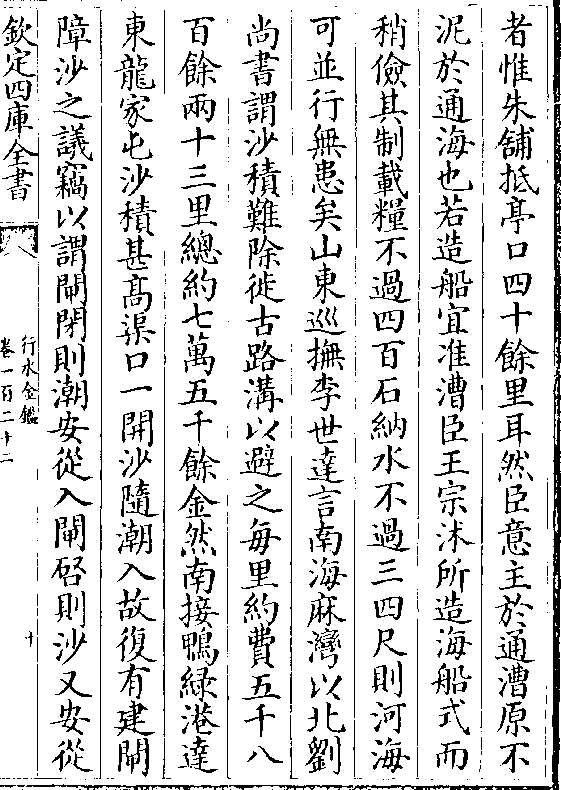 者惟朱舖抵亭口四十餘里耳然臣意主於通漕原不
泥於通海也若造船宜准漕臣王宗沐所造海船式而
稍儉其制載糧不過四百石納水不過三四尺則河海
可並行無患矣山東巡撫李世達言南海麻灣以北劉
尚書謂沙積難除徙古路溝以避之每里約費五千八
百餘兩十三里總約七萬五千餘金然南接鴨緑港達
東龍家屯沙積甚高渠口一開沙隨潮入故復有建閘
障沙之議竊以謂閘閉則潮安從入閘啓則沙又安從
欽定四庫全書
行水金鑑
卷一百二十二
十